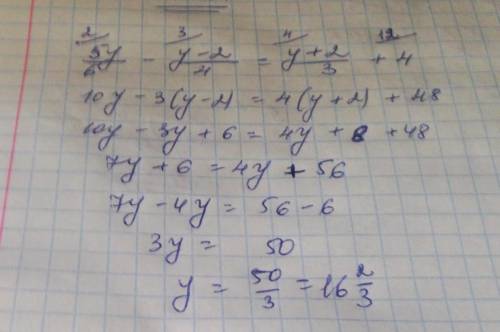 2/ 3/ 4/ 12/
5y/6 - (y-2)/4 = (y+2)/3 + 4
10y - 3(y-2) = 4(y+2) + 48
10y - 3y + 6 = 4y + 8 + 48
7y + 6 = 4y + 56
7y - 4y = 56 - 6
3y = 50
y = 50/3 = 16 2/3